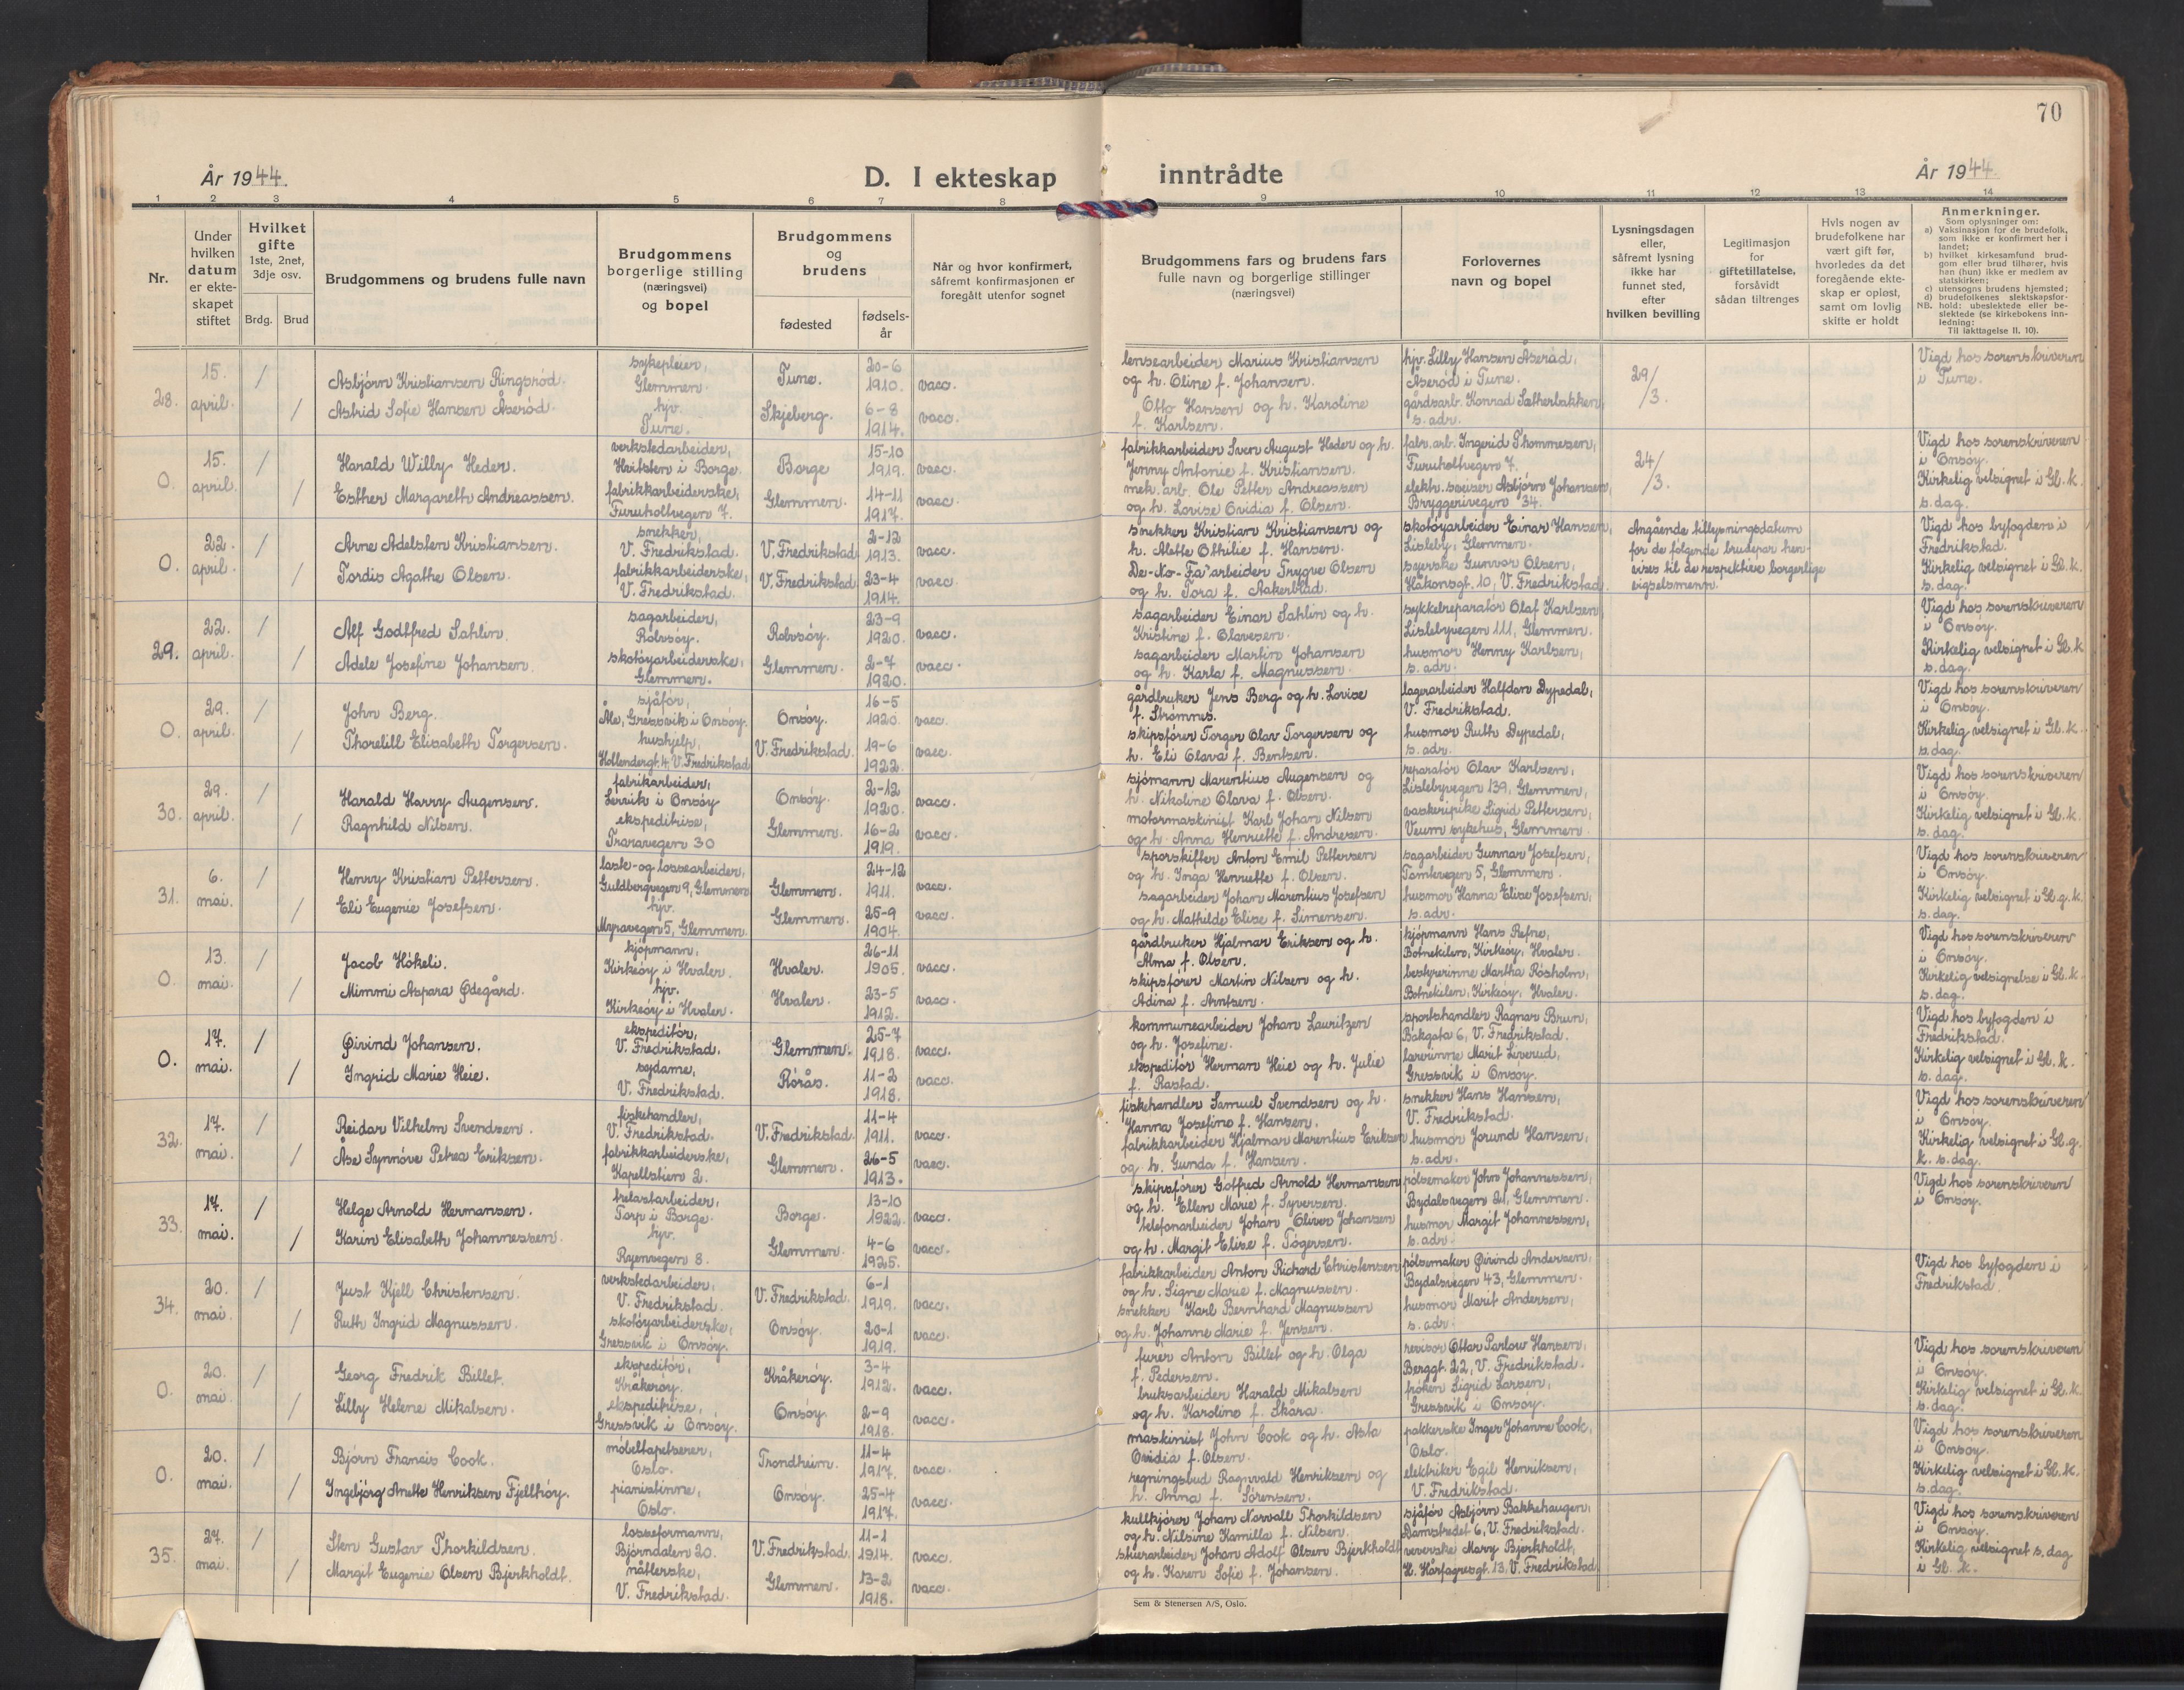 70
År 1944.
D. I ekteskap inntrådte
År 1944.
1 2 3 4 5 6 7 8 9 10 11 12 13 14
Nr.
Under hvilken datum er ekteskapet stiftet
Hvilket gifte
1ste, 2net, 3dje osv.
Brdg. Brud
Brudgommens og brudens fulle navn
Brudgommens borgerlige stilling (næringsvei) og bopel
Brudgommens og brudens
fødested
fødsels-år
Når og hvor konfirmert, såfremt konfirmasjonen er foregått utenfor sognet
Brudgommens fars og brudens fars fulle navn og borgerlige stillinger (næringsvei)
Forlovernes navn og bopel
Lysningsdagen eller, såfremt lysning ikke har funnet sted, efter hvilken bevilling
Legitimasjon for giftetillatelse, forsåvidt sådan tiltrenges
Hvis nogen av brudefolkene har vært gift før, hvorledes da det foregående ekteskap er opløst, samt om lovlig skifte er holdt
Anmerkninger.
Som oplysninger om:
a) Vaksinasjon for de brudefolk, som ikke er konfirmert her i landet;
b) hvilket kirkesamfund brudgom eller brud tilhører, hvis han (hun) ikke er medlem av statskirken;
c) utensogns brudens hjemsted;
d) brudefolkenes slektskapsforhold: ubeslektede eller beslektede (se kirkebokens innledning:
NB.
Til iakttagelse II. 10).
28. 15. april. 1 Asbjørn Kristiansen Ringsrød. sykepleier, Glemmen. Tune. 20-6 1910. vacc.
1 Astrid Sofie Hansen Åserød. hjv. Tune. Skjeberg. 6-8 1914. vacc.
lensearbeider Marius Kristiansen og h. Oline f. Johansen.
Otto Hansen og h. Karoline f. Karlsen.
hjv. Lilly Hansen Åserød, Åserød i Tune.
gårdsarb. Konrad Sætherbakken, s. adr.
29/3.
Vigd hos sorenskriveren i Tune.
0. 15. april. 1 Harald Willy Heder. verkstedarbeider, i Borge. Borge 15-10 1919. vacc.
1 Esther Margareth Andreassen. fabrikkarbeiderske, Furuholtvegen 7. Glemmen. 14-11 1917. vacc.
fabrikkarbeider Sven August Heder og h. Jenny Antonie f. Kristiansen.
mek. arb. Ole Petter Andreassen og h. Lovise Ovidia f. Olsen.
fabr. arb. Ingerid Thommesen, Furuholtvegen 7.
elektr. sveiser Asbjørn Johansen, Bryggerivegen 34.
24/3.
Vigd hos sorenskriveren i Onsøy. Kirkelig velsignet i Gl. k. s. dag.
0. 22. april. 1 Arne Adelsten Kristiansen. snekker, V. Fredrikstad. V. Fredrikstad 2-12 1913. vacc.
1 Tordis Agathe Olsen. fabrikkarbeiderske, V. Fredrikstad. V. Fredrikstad 23-4 1914. vacc.
snekker Kristian Kristiansen og h. Alette Othilie f. Hansen.
De-No-Fa arbeider Trygve Olsen og h. Tora f. Aakerblad.
skotøyarbeider Einar Hansen, Lisleby, Glemmen.
syerske Gunvor Olsen, Håkonsgt. 10, V. Fredrikstad
Angående tillysningsdatum for de følgende brudepar henvises til de respektive borgerlige vigselsmenn.
Vigd hos byfogden i Fredrikstad. Kirkelig velsignet i Gl. k. s. dag.
29. 22. april. 1 Alf Godtfred Sahlin. sagarbeider, Rolvsøy. Rolvsøy. 23-9 1920. vacc.
1 Adele Josefine Johansen. skotøyarbeiderske, Glemmen. Glemmen. 2-7 1920. vacc.
sagarbeider Einar Sahlin og h. Kristine f. Olavesen.
sagarbeider Martin Johansen og h. Karla f. Magnussen.
sykkelreparatør Olaf Karlsen, Lislebyvegen 111, Glemmen.
husmor Henny Karlsen, s. adr.
Vigd hos sorenskriveren i Onsøy. Kirkelig velsignet i Gl. k. s. dag.
0. 29. april. 1 John Berg. sjåfør, Åle, Gressvik i Onsøy. Onsøy. 16-5 1920. vacc.
1 Thorelill Elisabeth Torgersen. hushjelp, Hollendergt. 4, V. Fredrikstad V. Fredrikstad. 19-6 1922. vacc.
gårdbruker Jens Berg og h. Lovise f. Strømnes.
skipsfører Torger Olav Torgersen og h. Eli Olava f. Bentsen.
lagerarbeider Halfdan Dypedal, V. Fredrikstad.
husmor Ruth Dypedal, s. adr.
Vigd hos sorenskriveren i Onsøy. Kirkelig velsignet i Gl. k. s. dag.
30. 29. april. 1 Harald Harry Augensen. fabrikarbeider, Lervik i Onsøy Onsøy. 2-12 1920. vacc.
1 Ragnhild Nilsen. ekspeditrise, Traravegen 30 Glemmen. 16-2 1919. vacc.
sjømann Marentius Augensen og h. Nikoline Olava f. Olsen.
motormaskinist Karl Johan Nilsen og h. Anna Henriette f. Andresen.
reparatør Olav Karlsen, Lislebyvegen 139, Glemmen,
vaskeripike Sigrid Pettersen, Veum sykehus, Glemmen.
Vigd hos sorenskriveren i Onsøy. Kirkelig velsignet i Gl. k. s. dag.
31. 6. mai. 1 Henry Kristian Pettersen. laste- og lossearbeider, Guldbergvegen 9, Glemmen Glemmen. 24-12 1911. vacc.
1 Eli Eugenie Josefsen. hjv. Myravegen 5, Glemmen. Glemmen. 25-9 1904. vacc.
sporskifter Anton Emil Pettersen og h. Inga Henriette f. Olsen.
sagarbeider Johan Marentius Josefsen og h. Mathilde Elise f. Simensen.
sagarbeider Gunnar Josefsen, Tomtevegen 5, Glemmen.
husmor Hanna Elise Josefsen, s. adr.
Vigd hos sorenskriveren i Onsøy. Kirkelig velsignet i Gl. g. k. s. dag.
0. 13. mai. 1 Jacob Hökeli. kjøpmann, Kirkeøy i Hvaler. Hvaler. 26-11 1905. vacc.
1 Mimmi Aspara Ødegård. hjv. Kirkeøy i Hvaler. Hvaler. 23-5 1912. vacc.
gårdbruker Hjalmar Eriksen og h. Alma f. Olsen.
skipsfører Martin Nilsen og h. Adina f. Arntsen.
kjøpmann Hans Refne, Botnekilen, Kirkeøy, Hvaler.
bestyrerinne Martha Rösholm, Botnekilen, Kirkeøy, Hvaler.
Vigd hos sorenskriveren i Onsøy. Kirkelig velsignelse i Gl. k. s. dag.
0. 17. mai. 1 Øivind Johansen. ekspeditør, V. Fredrikstad. Glemmen. 25-7 1918. vacc.
1 Ingrid Marie Heie. sydame, V. Fredrikstad. Rørås. 11-2 1918. vacc.
kommunearbeider Johan Lauritzen og h. Josefine.
ekspeditør Herman Heie og h. Julie f. Rastad.
sportshandler Ragnar Brun, Bakgata 6, V. Fredrikstad.
lærerinne Marit Liverud, Gressvik i Onsøy.
Vigd hos byfogden i Fredrikstad. Kirkelig velsignet i Gl. k. s. dag.
32. 17. mai. 1 Reidar Vilhelm Svendsen. fiskehandler, V. Fredrikstad. V. Fredrikstad. 11-4 1911. vacc.
1 Åse Synnøve Petrea Eriksen. fabrikkarbeiderske, Kapellstien 2. Glemmen. 26-5 1913. vacc.
fiskehandler Samuel Svendsen og h. Hanna Josefine f. Hansen.
fabrikkarbeider Hjalmar Marentius Eriksen og h. Gunda f. Hansen.
snekker Hans Hansen, V. Fredrikstad.
husmor Jorund Hansen, s. adr.
Vigd hos sorenskriveren i Onsøy. Kirkelig velsignet i Gl. g. k. s. dag.
33. 17. mai. 1 Helge Arnold Hermansen. trelastarbeider, Torp i Borge. Borge. 13-10 1922. vacc.
1 Karin Elisabeth Johannessen. hjv. Ryenvegen 8. Glemmen. 4-6 1925. vacc.
skipsfører Gotfred Arnold Hermansen og h. Ellen Marie f. Syversen.
telefonarbeider Johan Oliver Johansen og h. Margit Elise f. Tøgersen.
pølsemaker John Johannessen, Bydalsvegen 21, Glemmen.
husmor Margit Johannessen, s. adr.
Vigd hos sorenskriveren i Onsøy.
34. 20. mai. 1 Just Kjell Christensen. verkstedarbeider, V. Fredrikstad. V. Fredrikstad. 6-1 1919. vacc.
1 Ruth Ingrid Magnussen. skotøyarbeiderske, Gressvik i Onsøy. Onsøy. 20-1 1919. vacc.
fabrikkarbeider Anton Richard Christensen og h. Signe Marie f. Magnussen.
snekker Karl Bernhard Magnussen og h. Johanne Marie f. Jensen.
pølsemaker Øivind Andersen, Bydalsvegen 43, Glemmen.
husmor Marit Andersen, s. adr.
Vigd hos byfogden i Fredrikstad.
0. 20. mai. 1 Georg Fredrik Billet. ekspeditør, Kråkerøy. Kråkerøy. 3-4 1912. vacc.
1 Lilly Helene Mikalsen. ekspeditrise, Gressvik i Onsøy. Onsøy. 2-9 1918. vacc.
furer Anton Billet og h. Olga f. Pedersen.
bruksarbeider Harald Mikalsen og h. Karoline f. Skåra.
revisor Ottar Parlow Hansen, Berggt. 22, V. Fredrikstad.
frøken Sigrid Larsen, Gressvik i Onsøy.
Vigd hos sorenskriveren i Onsøy. Kirkelig velsignet i Gl. k. s. dag.
0. 20. mai. 1 Bjørn Francis Cook. møbeltapetserer, Oslo. Trondheim. 11-4 1917. vacc.
1 Ingebjørg Anette Henriksen Fjellhøy. pianistinne, Oslo. Onsøy. 25-4 1917. vacc.
maskinist John Cook og h. Asta Ovidia f. Olsen.
regningsbud Ragnvald Henriksen og h. Anna f. Sørensen.
pakkerske Inger Johanne Cook, Oslo.
elektriker Egil Henriksen, V. Fredrikstad.
Vigd hos sorenskriveren i Onsøy. Kirkelig velsignet i Gl. k. s. dag.
35. 27. mai. 1 Sten Gustav Thorkildsen. losseformann, Bjørndalen 20. V. Fredrikstad. 11-1 1914. vacc.
1 Margit Eugenie Olsen Bjerkholdt. nåtlerske, V. Fredrikstad. Glemmen. 13-2 1918. vacc.
kullkjører Johan Norvall Thorkildsen og h. Nilsine Kamilla f. Nilsen.
stuerarbeider Johan Adolf Olsen Bjerkholdt og h. Karen Sofie f. Johansen.
sjåfør Asbjørn Bakkehaugen, Damstredet 6, V. Fredrikstad.
veverske Mary Bjerkholdt, H. Hårfagresgt. 13, V. Fredrikstad
Vigd hos sorenskriveren i Onsøy. Kirkelig velsignet s. dag i Gl. k.
Sem & Stenersen A/S, Oslo.